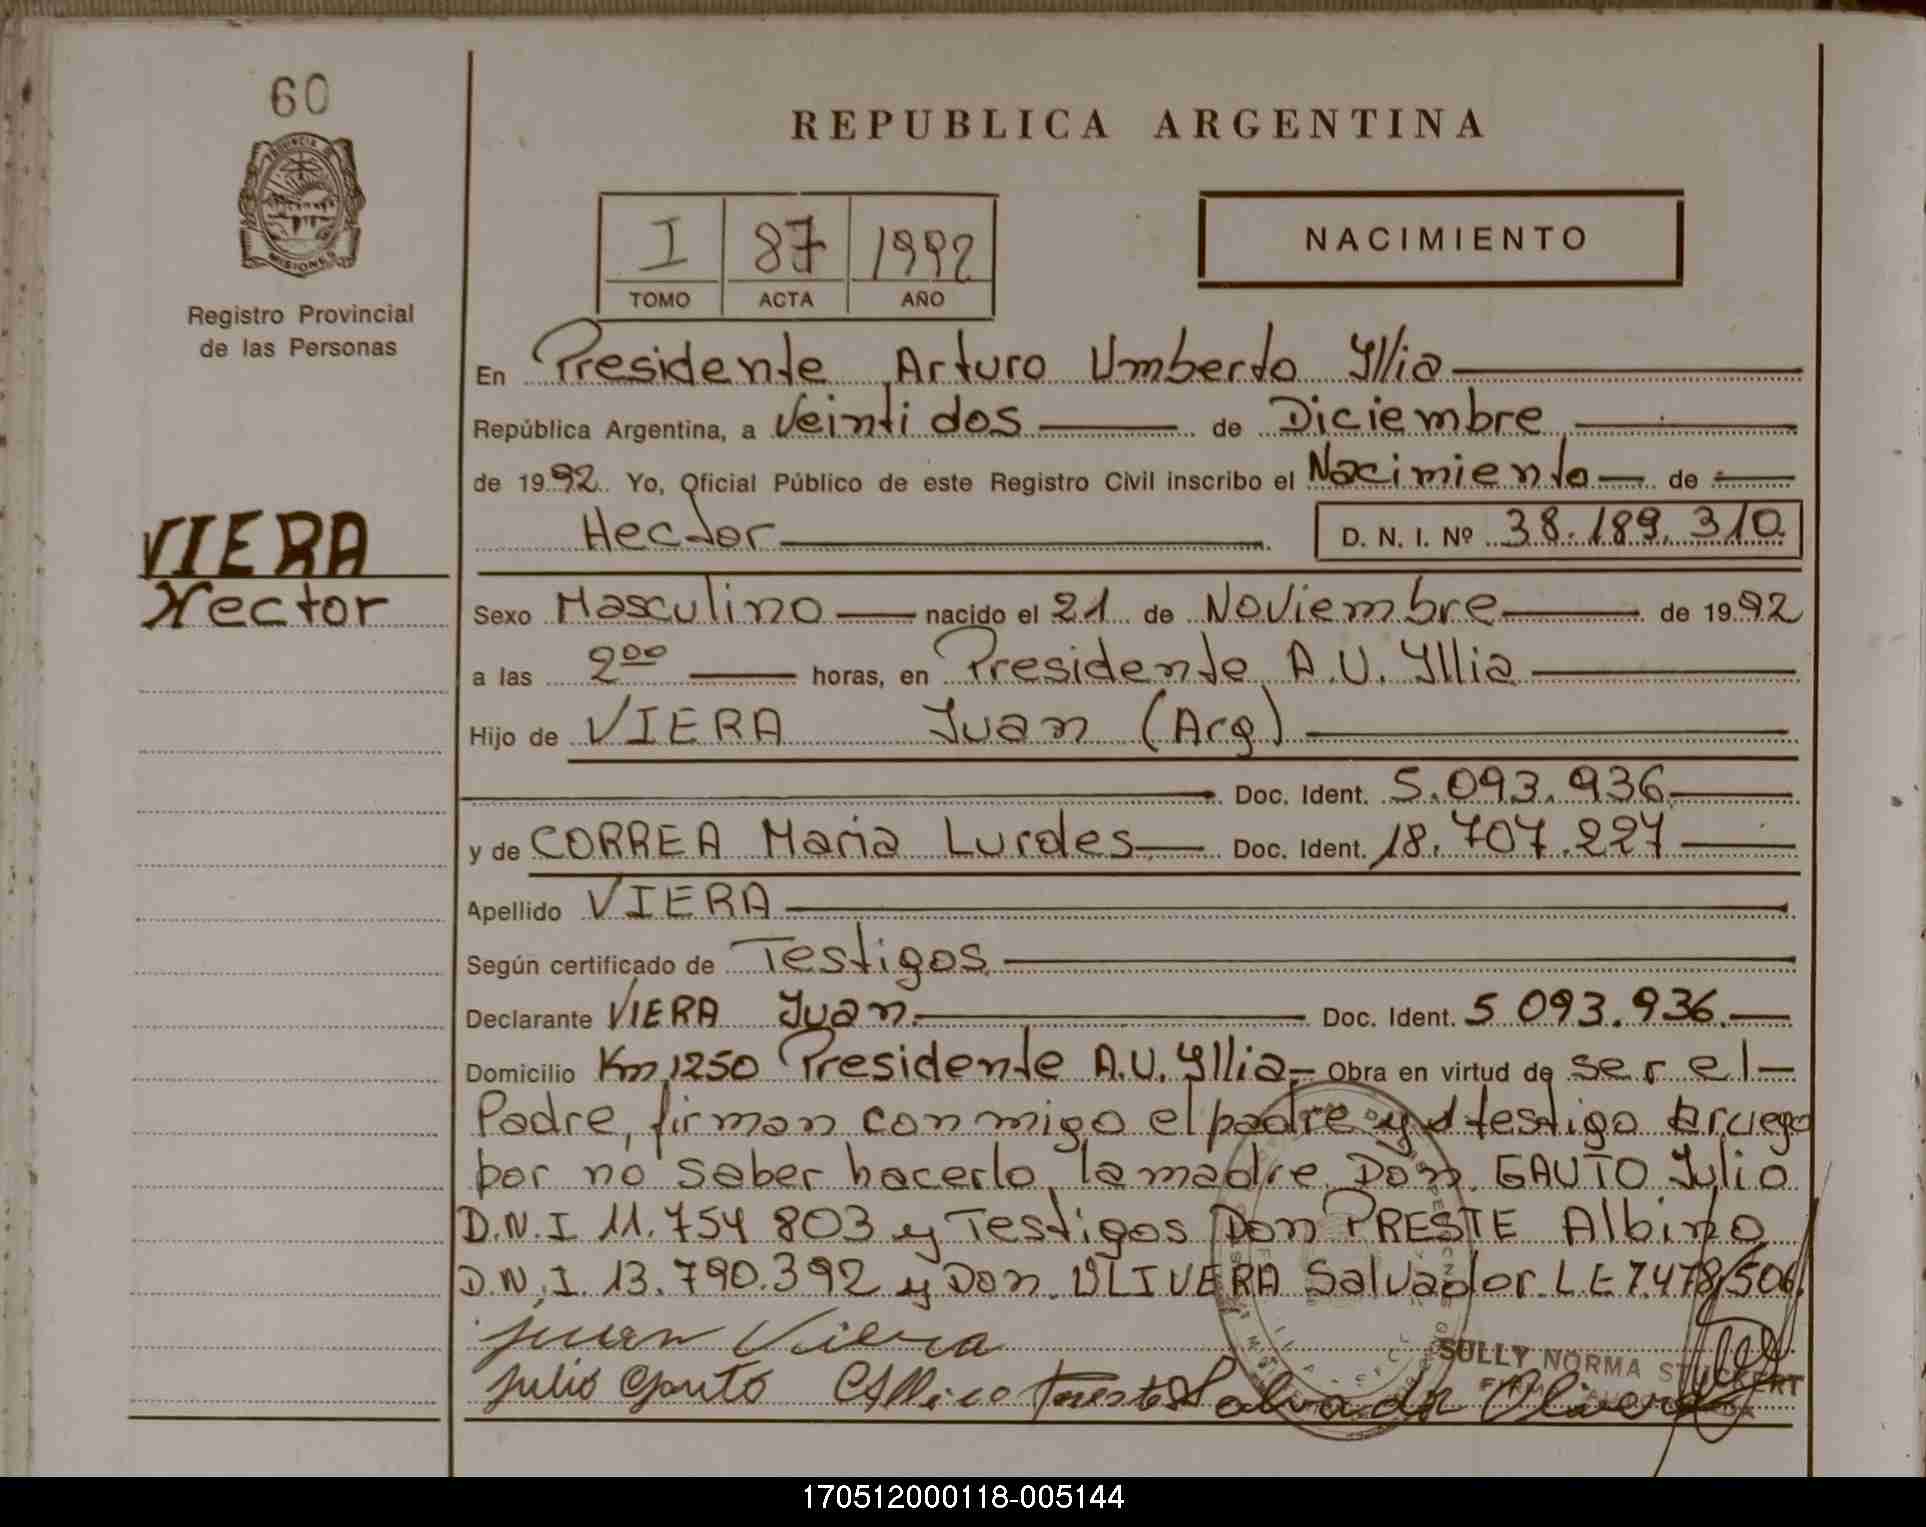 60
PROVINCIA DE
MISIONES
Registro Provincial
de las Personas
VIERA
Hector
REPUBLICA ARGENTINA
I 87 1992
TOMO ACTA AÑO
NACIMIENTO
En Presidente Arturo Umberto Yllia
República Argentina, a Veinti dos de Diciembre
de 1992. Yo, Oficial Público de este Registro Civil inscribo el Nacimiento de
Hector D. N. I. Nº 38.189.310
Sexo Masculino nacido el 21 de Noviembre de 1992
a las 2 00 horas, en Presidente A.U. Yllia
Hijo de VIERA Juan (Arg)
Doc. Ident. 5.093.936
y de CORREA Maria Lurdes Doc. Ident. 18.707.227
Apellido VIERA
Según certificado de Testigos
Declarante VIERA Juan. Doc. Ident. 5 093.936.
Domicilio Km 1250 Presidente A.U. Yllia Obra en virtud de ser el
Padre, firman con migo el padre y el testigo aruego
por no saber hacerlo, la madre Don. GAUTO Julio
D.N.I 11.754 803 y Testigos Don PRESTE Albino
D.N.I. 13.790.392 y Don. OLIVERA Salvador L.E 7.478/506.
juan Viera
Julio Gauto Salvador Olivera
SULLY NORMA STUCKERT
170512000118-005144